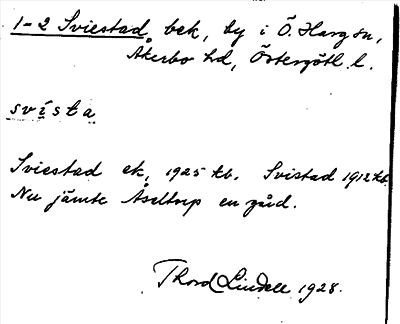 1-2 Sviestad, bek, by i Ö. Harg sn,
Åkerbo hd, Östergötl. l.
svista
Sviestad ek, 1925 kb. Svistad 1912 kb.
Nu jämte Åseltorp en gård.
Thord Lindell 1928.